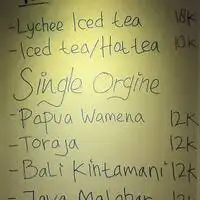 -Lychee Iced tea 18k
-Iced tea/Hot tea 10k
Single Orgine
-Papua Wamena 12k
-Toraja 12k
-Bali Kintamani 12k
-Java Malabar 12k